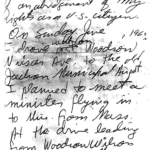 an abridgement of my
rights as a U.S. citizen
On Sunday June , 196
I drove out Woodrow
Wilson Ave to the old
Jackson Municipal Airpt.
I planned to meet a
minister flying in
to Miss. from Mass.
At the drive leading
from Woodrow Wilson